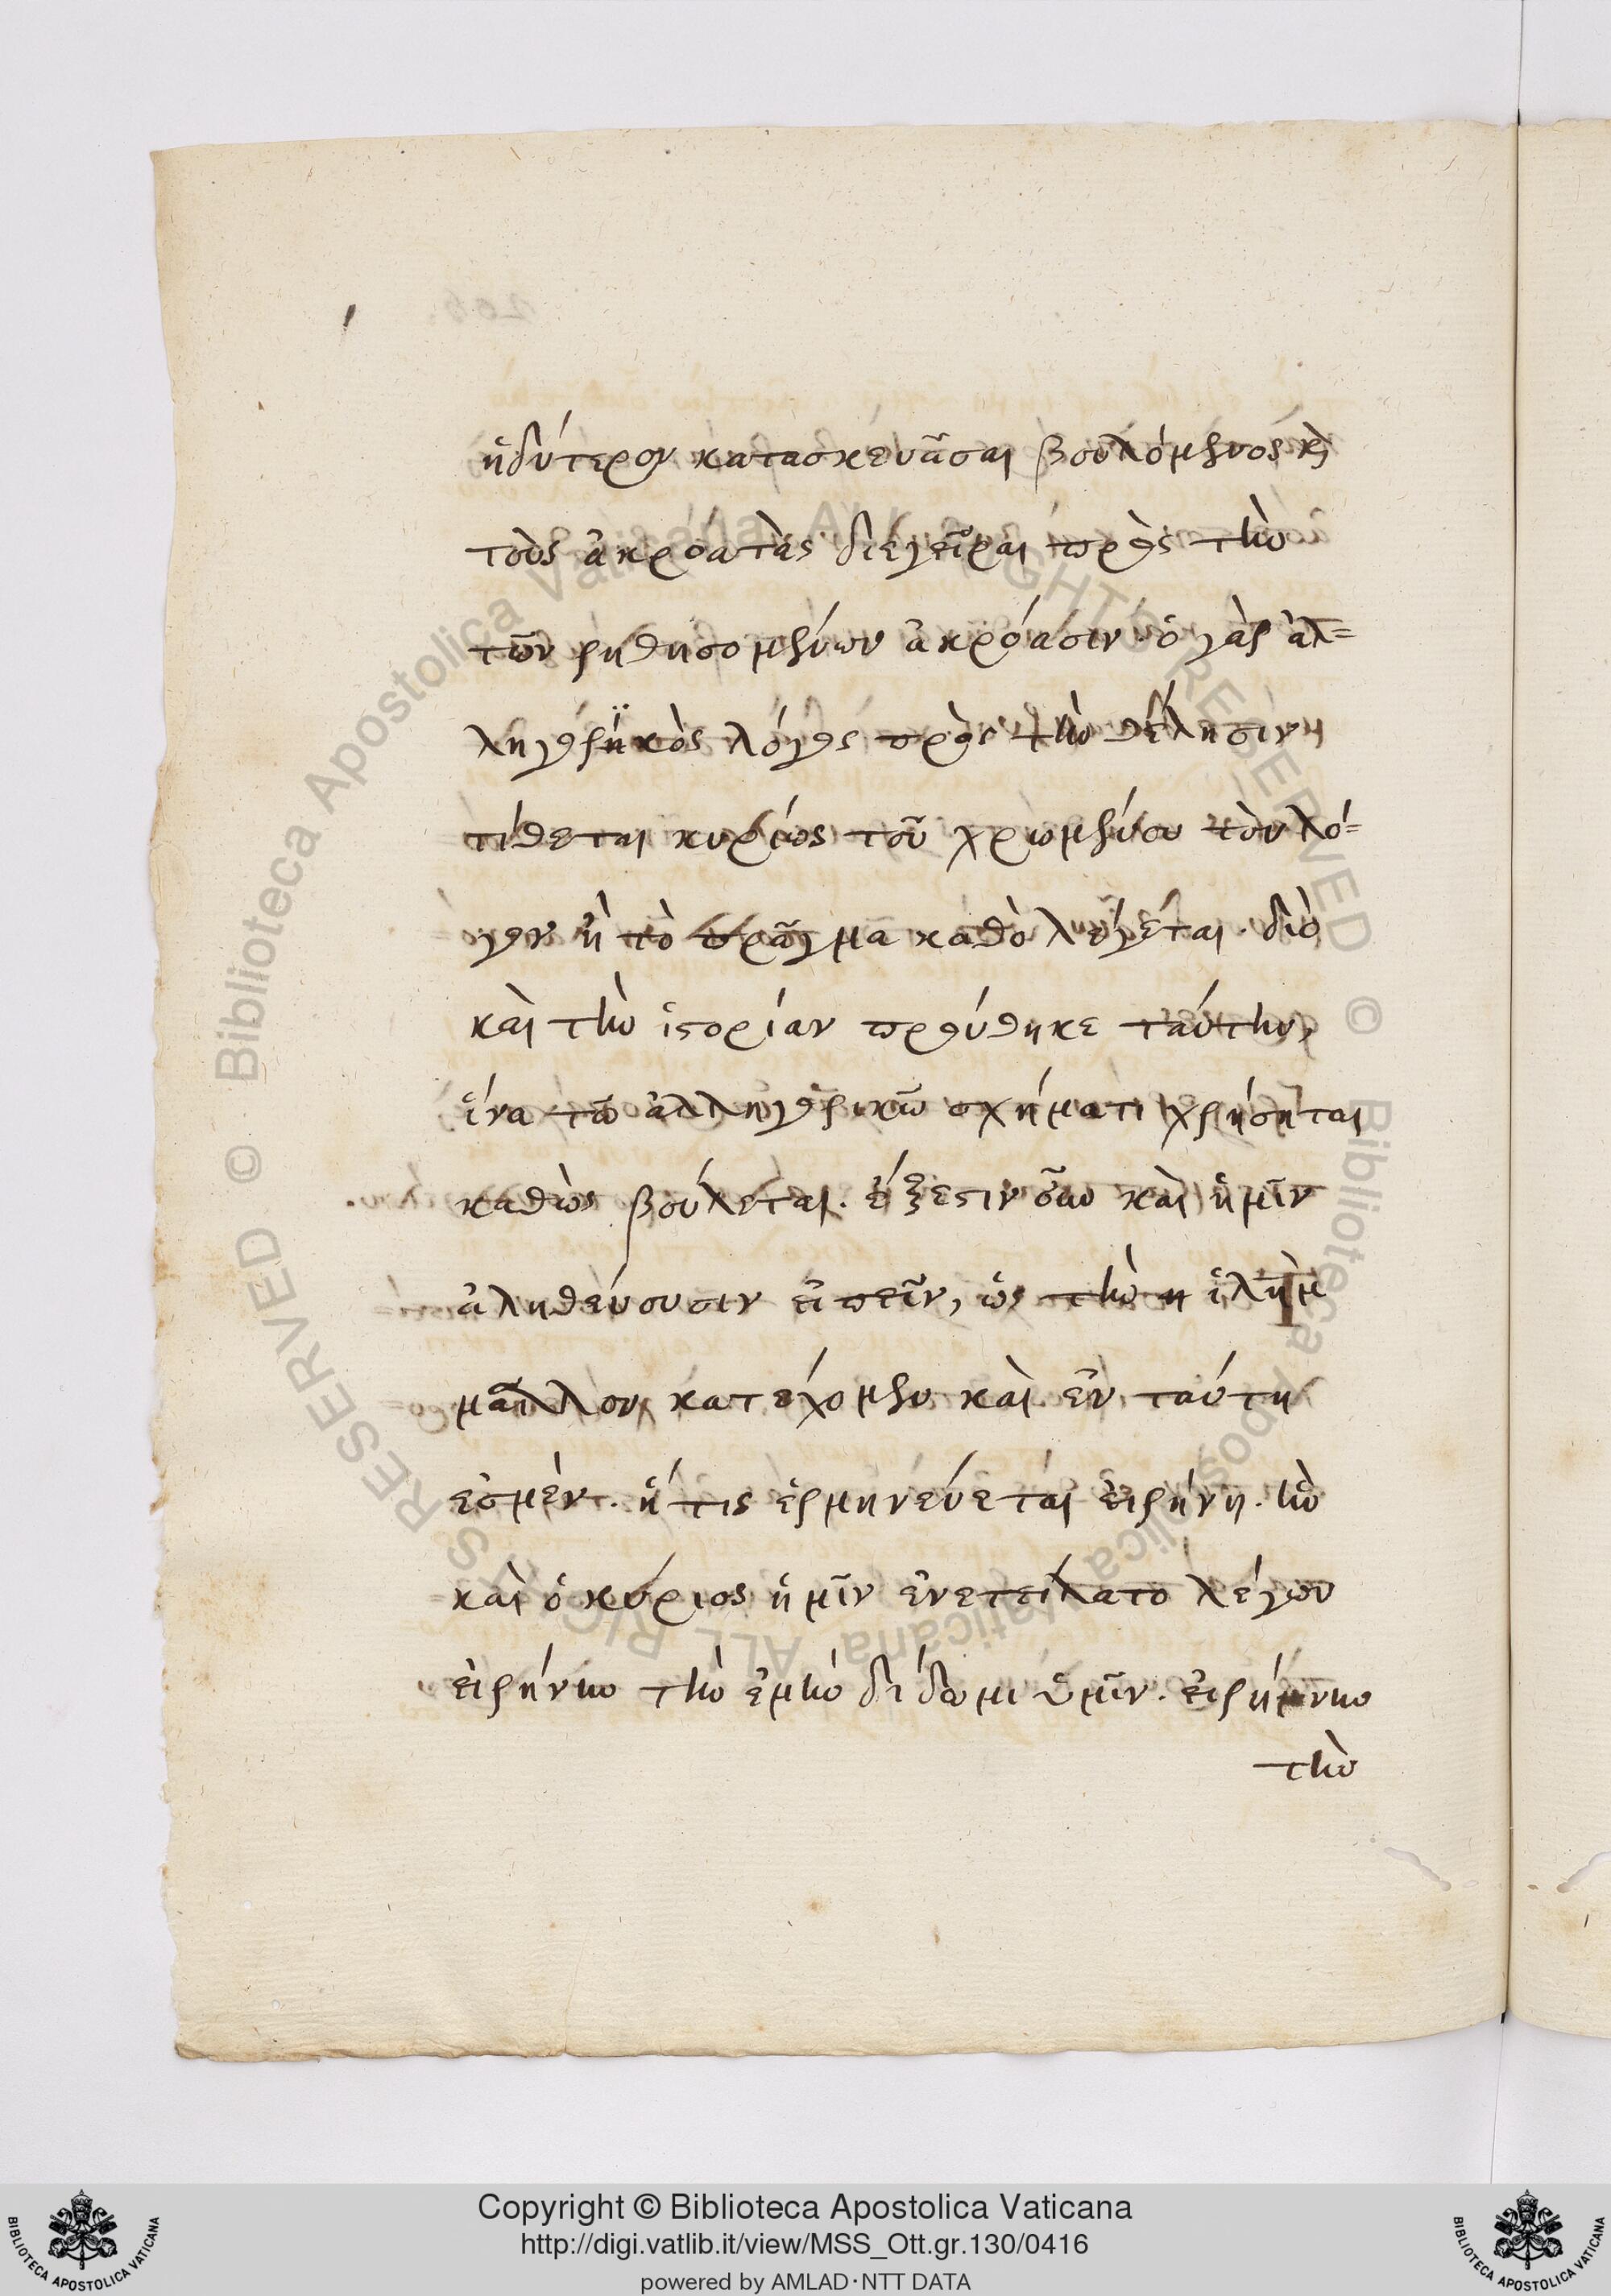 ἡδύτερον κατασκευᾶσαι βουλόμενος κὶ
τοὺς ἀκροατὰς διεγεῖραι πρὸς τὴν
τῶν ῥηθησομένων ἀκρόασιν· ὁ γὰρ ἀλ=
ληγορϊκὸς λόγος πρὸς τὴν θέλησιν
τίθεται κυρίως τοῦ χρωμένου τὸν λό=
γον ἢ τὸ πρᾶγμα καθὸ λέγεται. διὸ
καὶ τὴν ἱστορίαν προύθηκε ταύτην,
ἵνα τῶ ἀλληγορικῶ σχήματι χρήσηται
καθὼς βούλεται. ἔξεστιν οὖν καὶ ἡμῖν
ἀληθεύουσιν εἰπεῖν, ὡς τὴν ἱλὴμ
μᾶλλον κατέχομεν καὶ ἐν ταύτη
ἐσμὲν. ἥ τις ἑρμηνεύεται εἰρήνη. ἣν
καὶ ὁ κύριος ἡμῖν ἐνετείλατο λέγων
εἰρήνην τὴν ἐμὴν δίδωμι ὑμῖν. εἰρήνην
τὴν
Copyright © Biblioteca Apostolica Vaticana
http://digi.vatlib.it/view/MSS_Ott.gr.130/0416
powered by AMLAD·NTT DATA
BIBLIOTECA APOSTOLICA VATICANA
BIBLIOTECA APOSTOLICA VATICANA
© Biblioteca Apostolica Vaticana ALL RIGHTS RESERVED
© Biblioteca Apostolica Vaticana ALL RIGHTS RESERVED